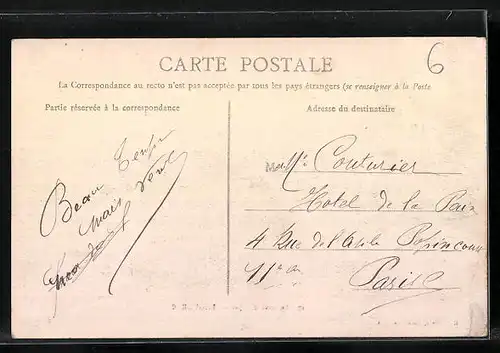 CARTE POSTALE
6
La Correspondance au recto n'est pas acceptée par tous les pays étrangers (se renseigner à la Poste
Partie réservée à la correspondance
Adresse du destinataire
Beau Temps
mais vent
Couturier
Hotel de la Paix
4 Rue de l'Asile Popincourt
11e
Paris